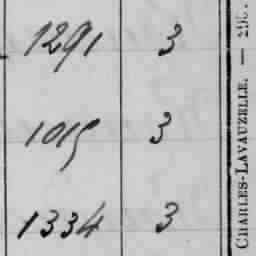 1291 3
1019 3
1334 3
CHARLES-LAVAUZELLE. — 295.